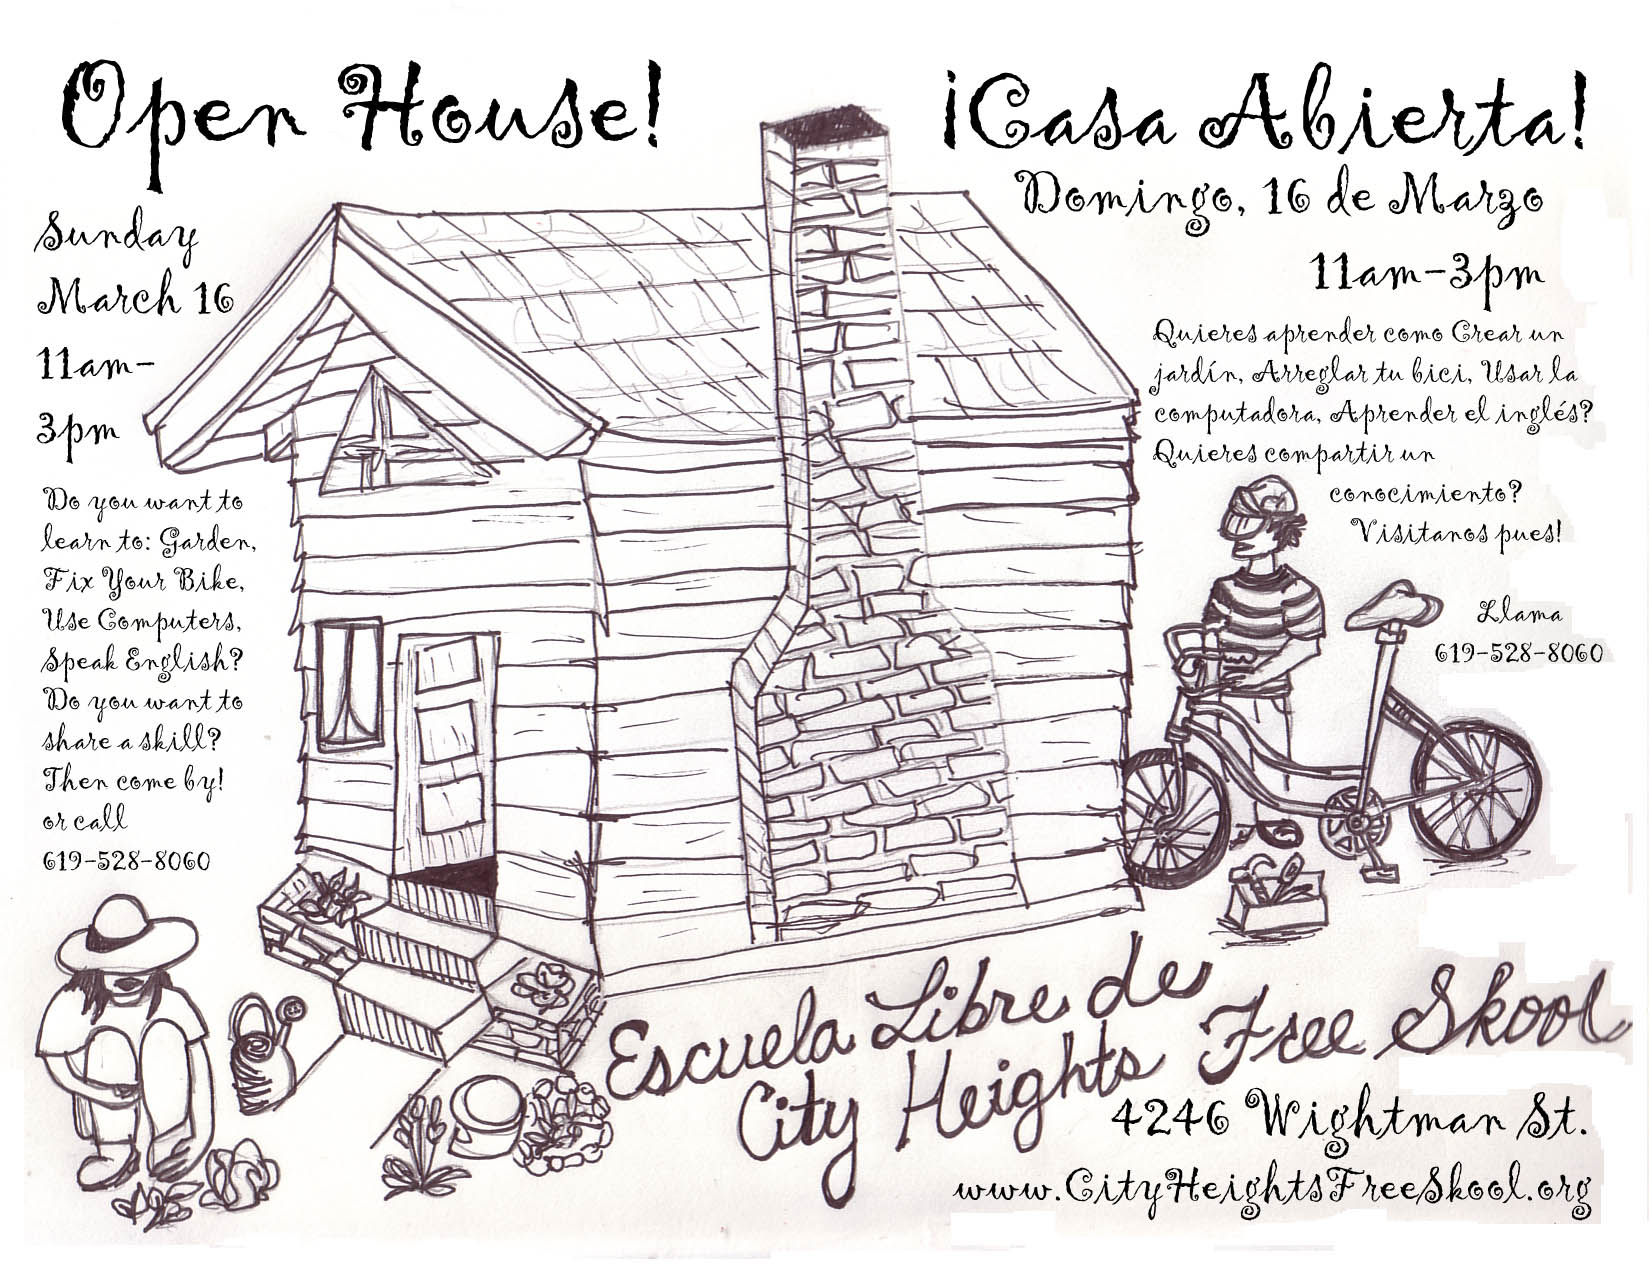 Open House!
Sunday
March 16
11am-
3pm
Do you want to
learn to: Garden,
Fix Your Bike,
Use Computers,
Speak English?
Do you want to
share a skill?
Then come by!
or call
619-528-8060
¡Casa Abierta!
Domingo, 16 de Marzo
11am-3pm
Quieres aprender como Crear un
jardín, Arreglar tu bici, Usar la
computadora, Aprender el inglés?
Quieres compartir un
conocimiento?
Visitanos pues!
Llama
619-528-8060
Escuela Libre de
City Heights Free Skool
4246 Wightman St.
www.CityHeightsFreeSkool.org